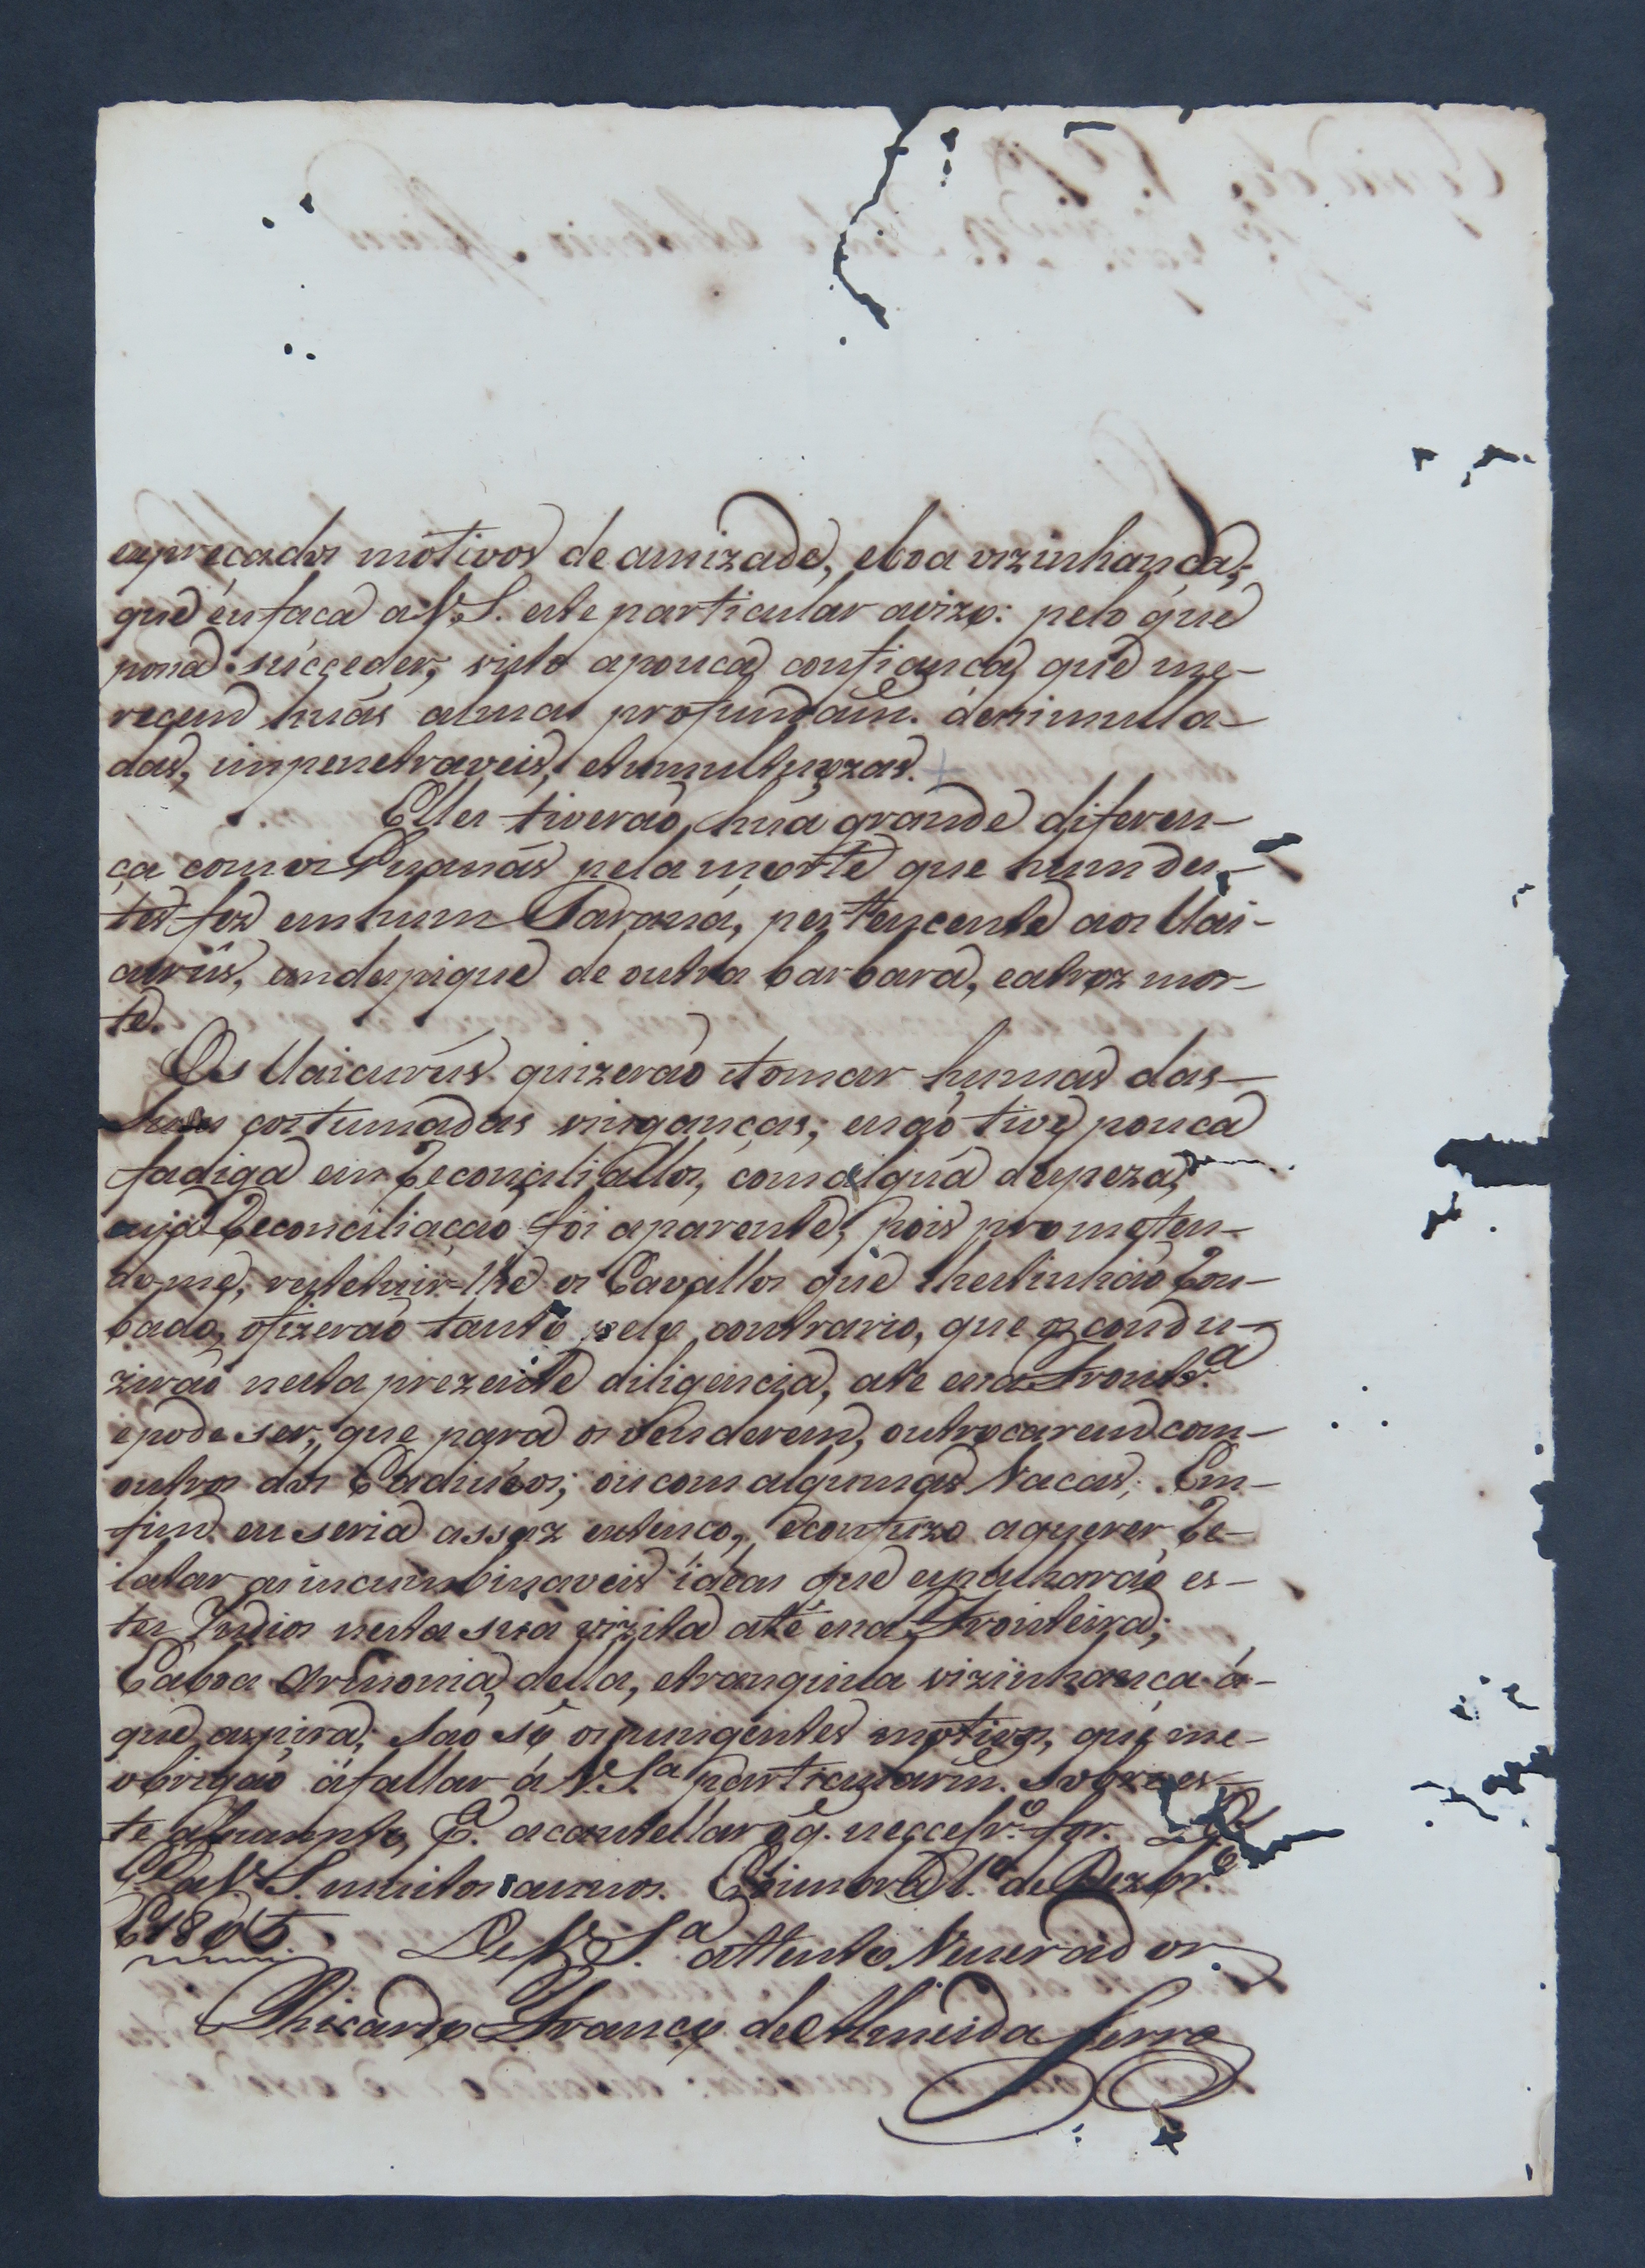 expreçados motivos de amizade, eboa vizinhança,
que eu faça a V. S. este particular avizo: pelo que
possa succeder, visto apouca confiança, que me-
recem huãs almas profundam.e desimula-
das, impenetraveis, etumultuozas.
Elles tiverão, huã grande diferen-
ça com os Guanás pela morte que hum des-
tes fez em hum Paraná, pertencente aos Uai-
curûs, em despique de outra barbara, eatroz mor-
te.
Os Uaicurús quizerão tomar humas das
suas costumadas vinganças; enaó tive pouca
fadiga em Reconciliallos, com alguã despeza,
cuja Reconciliação foi aparente, pois prometen-
dome, restetuir-lhe os Cavallos que lhestinhão Rou-
bado, ofizerão tanto pelo contrario, que os condu-
zirão nesta prezente diligencia, ate essa Frontr.a
epode ser, que para os venderem, outrocarem com
outros dos Cadiuéos; ou com algumas Vacas; Em-
fim eu seria assaz extenço, econfuzo aquerer Re-
latar as incumbinaveis idéas que espalharão es-
tes Indios nesta sua vizita até essa Fronteira;
Eaboa Armonia, della, etranquila vizinhança á-
que aspira, são só os pungentes motivos, que me-
obrigão áfallar á V. S.a particularm.e sobre es-
te assumpto, E. acautellar o q. neccessr.o for. Ds
G.e a V. S. muitos annos. Coimbra 1.o de Dezbr.o
E 1805
De V. S.a attento Venerador.
Rhicardo Franco de Almeida Serra